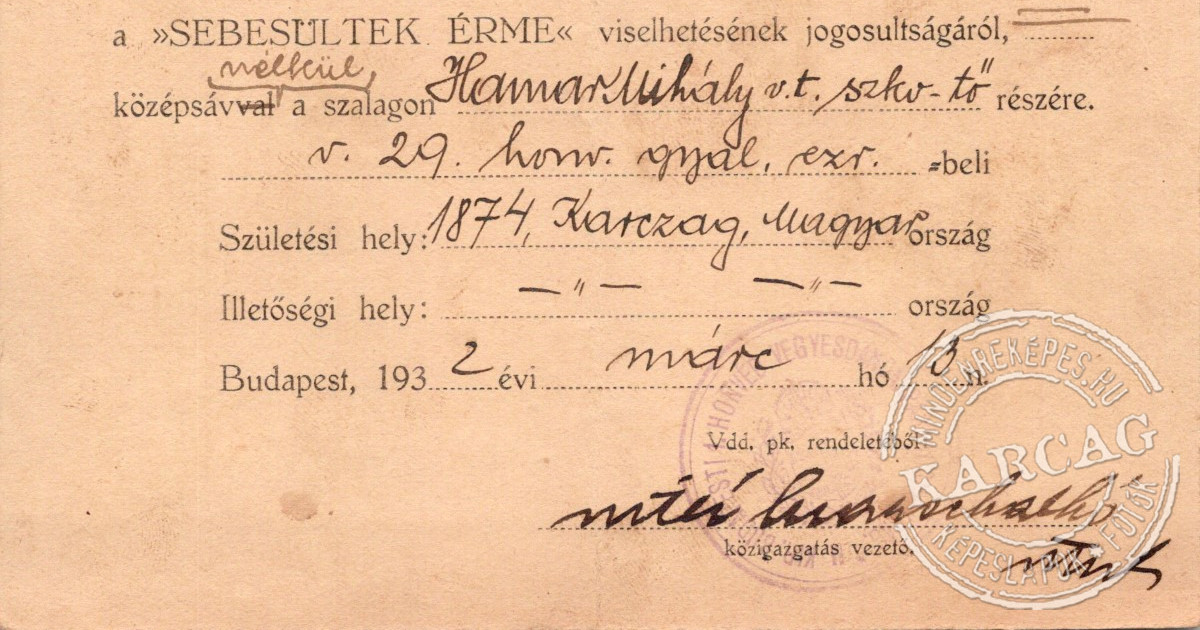 a »SEBESÜLTEK ÉRME« viselhetésének jogosultságáról,
nélkül,
középsávval a szalagon Hamar Mihály v.t. szkv-tő részére.
v. 29. honv. gyal. ezr. =beli
Születési hely: 1874, Karczag, Magyarország
Illetőségi hely: —〃— —〃— ország
Budapest, 1932 évi márc hó 13 n.
Vdd. pk. rendeletéből
közigazgatás vezető.
MINDENREKÉPES.HU
KARCAG
KÉPESLAPOK * FOTÓK